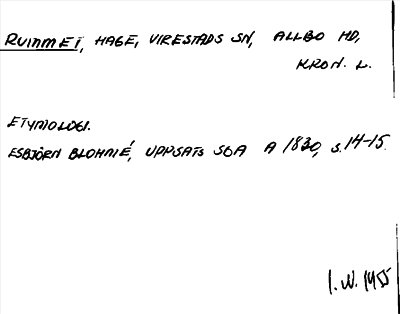 RUMMEI, HAGE, VIRESTADS SN, ALLBO HD,
KRON. L.
ETYMOLOGI.
ESBJÖRN BLOHMÉ, UPPSATS SOA A 1830, s. 14-15.
I.W. 1955